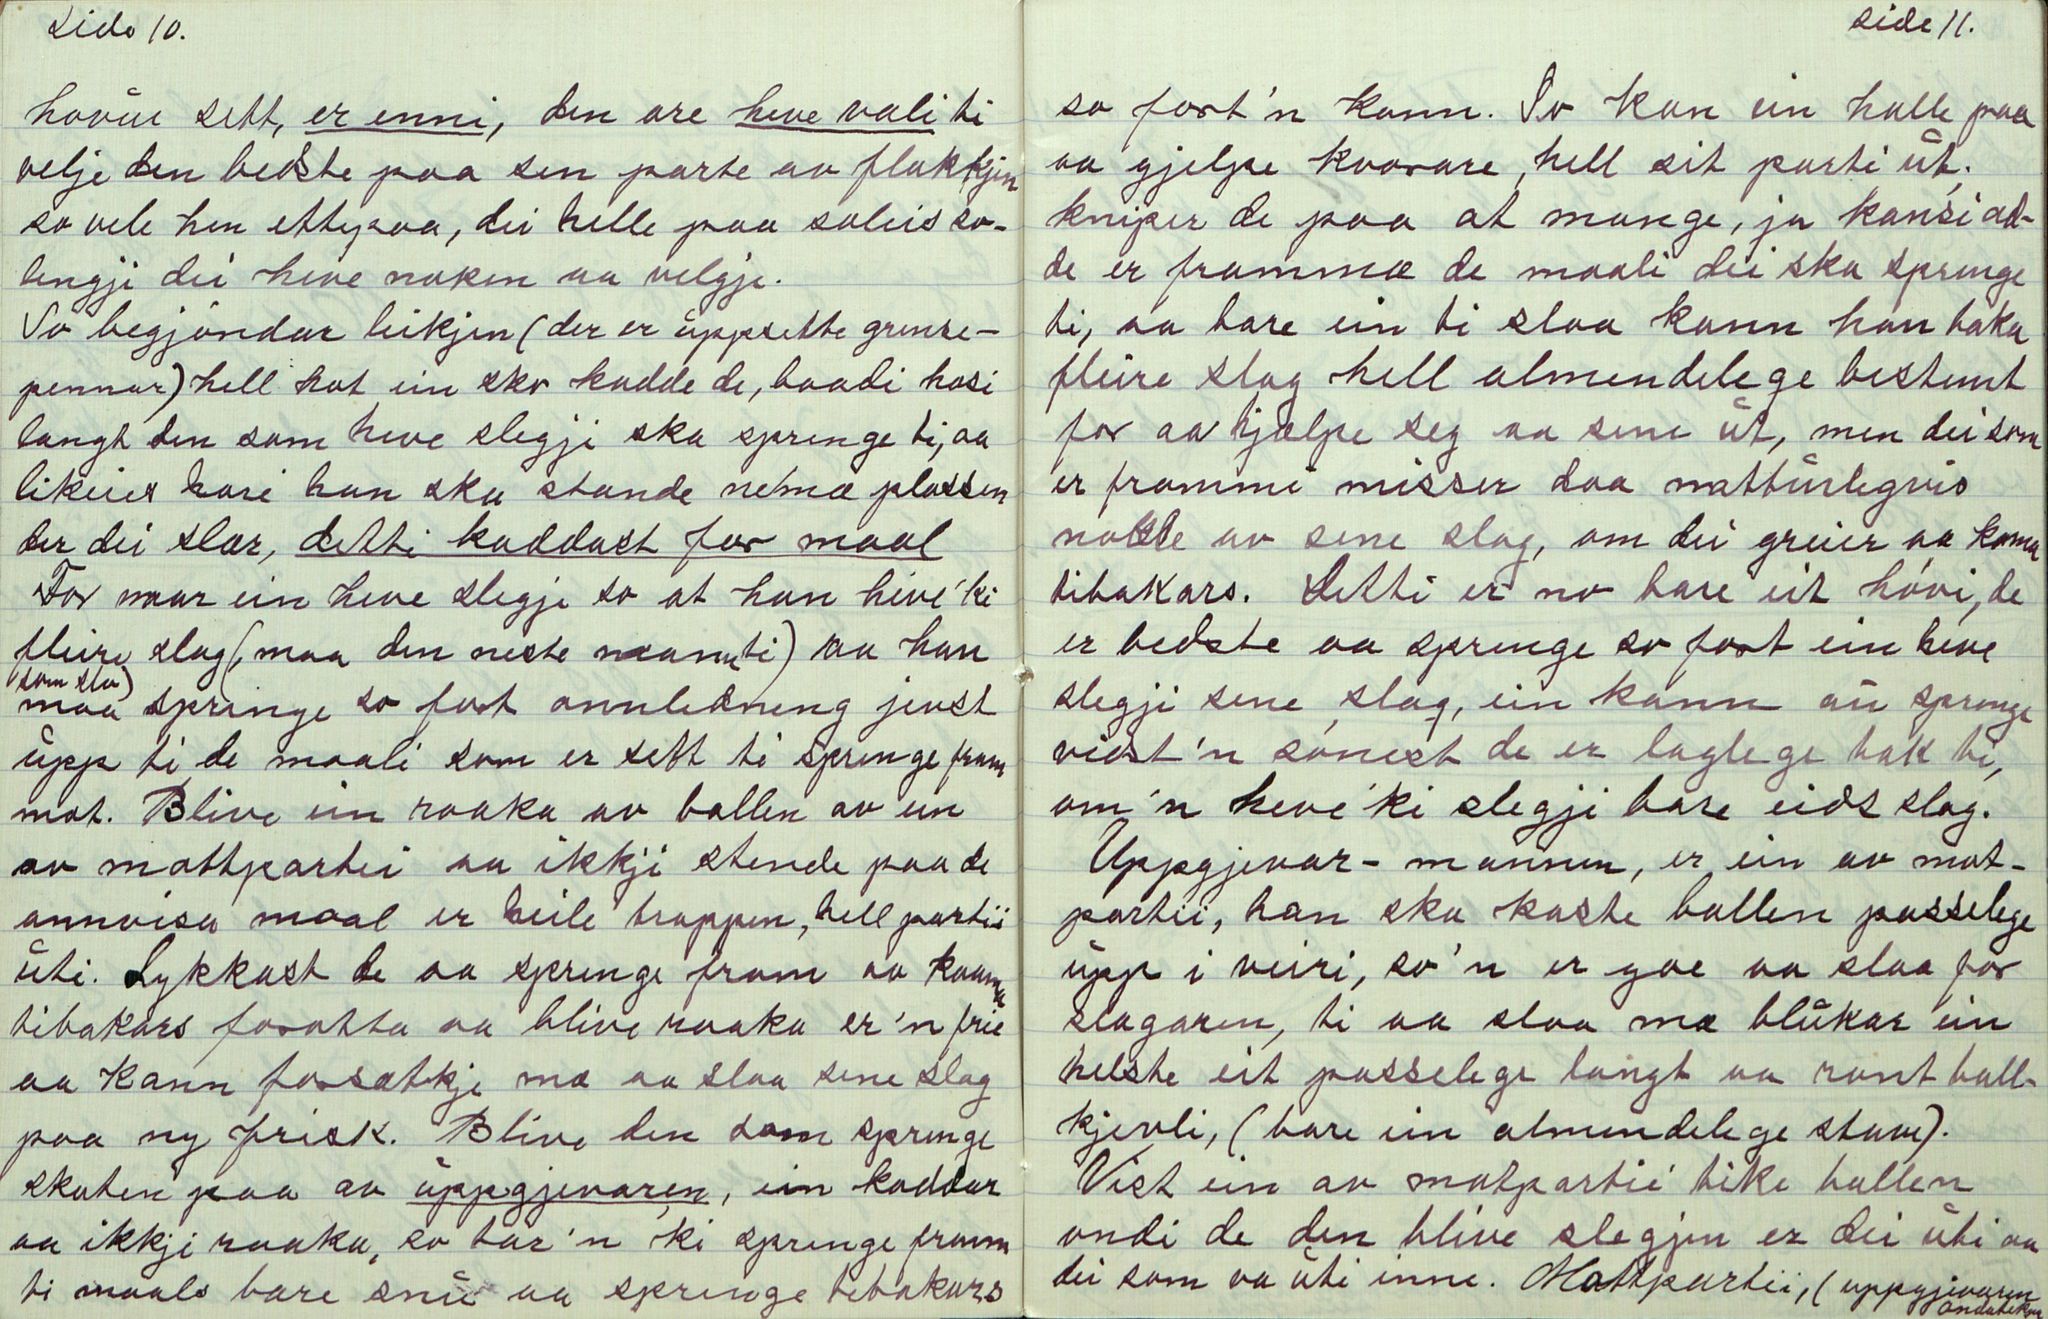 Side 10.
hovûe sett, er enni, den are heve vali ti
velje den bedste paa sen parte av flokkjen
so vele hen ettepaa, dei helle paa soleis so-
lengji dei heve noken aa velgje.
So begjöndar leikjen (der er ûppsette grense-
pennar) hell kot ein sko kadde de, baadi hosi
langt den som heve slegji ska sprenge ti, aa
likeies hori han ska stande neʼmæ plassen
der dei slær, detti kaddast for maal
For naar ein heve slegje so at han heveʼki
fleire slag (maa den neste mannti) aa han
(som slo)
maa springe so fort annledneng jevst
ûpp ti de maali som er sett ti sprenge fram
mot. Blive ein raaka av ballen av ein
av mottpartei aa ikkji stende paa de
annvisa maal er heile troppen, hell partii
ûti. Lykkast de aa sprenge fram aa koama
tibakars foruttta aa blive raaka erʼn frie
aa kann forsætkje mæ aa slaa sene slag
paa ny frisk. Blive den som sprenge
skoten paa av ûppgjevaren, ein kaddar
aa ikkji raaka, so tarʼn ʼki sprenge framm
ti maals bare snû aa sprenge tebakars
side 11.
so fortʼn kann. So kan ein halle paa
aa gjelpe kvorare, hell sit parti ût.
kniper de paa at mange, ja kansi ad-
de er frammæ de maali dei ska sprenge
ti, aa bare ein ti slaa kann han taka
fleire slag hell almendelege bestemt
for aa hjælpe seg aa sene ût, men dei som
er frammi misser daa nattûrlegvis
nokle av sene slag, om dei greier aa koma
tibakars. Detti er no bare eit hóvi, de
er bedste aa sprenge so fort ein heve
slegji sene slag, ein kann aû sprenge
vistʼn sónest de er laglege bak ti,
omʼn heveʼki slegji bare eids slag.
Uppgjevar-mannen, er ein av mot-
partii, han ska kaste ballen passelege
ûpp i veiri, soʼn er goe aa slaa for
slagaren, ti aa slaa mæ blûkar ein
helste eit passelege langt aa rant ball-
kjevli, (bare ein almendelege stave).
Vist ein av motpartii tike ballen
ondi de den blive slegjen er dei ûti aa
dei som va ûti inne. Mottpartii, (uppgjevaren
ondateken